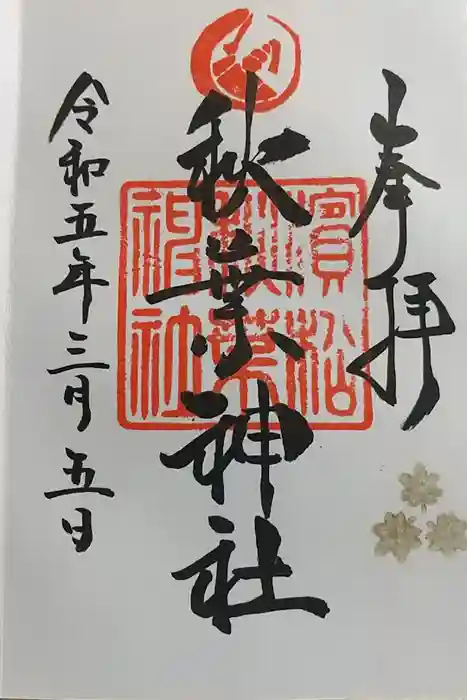 奉拝
秋葉神社
濱松
秋葉
神社
令和五年三月五日